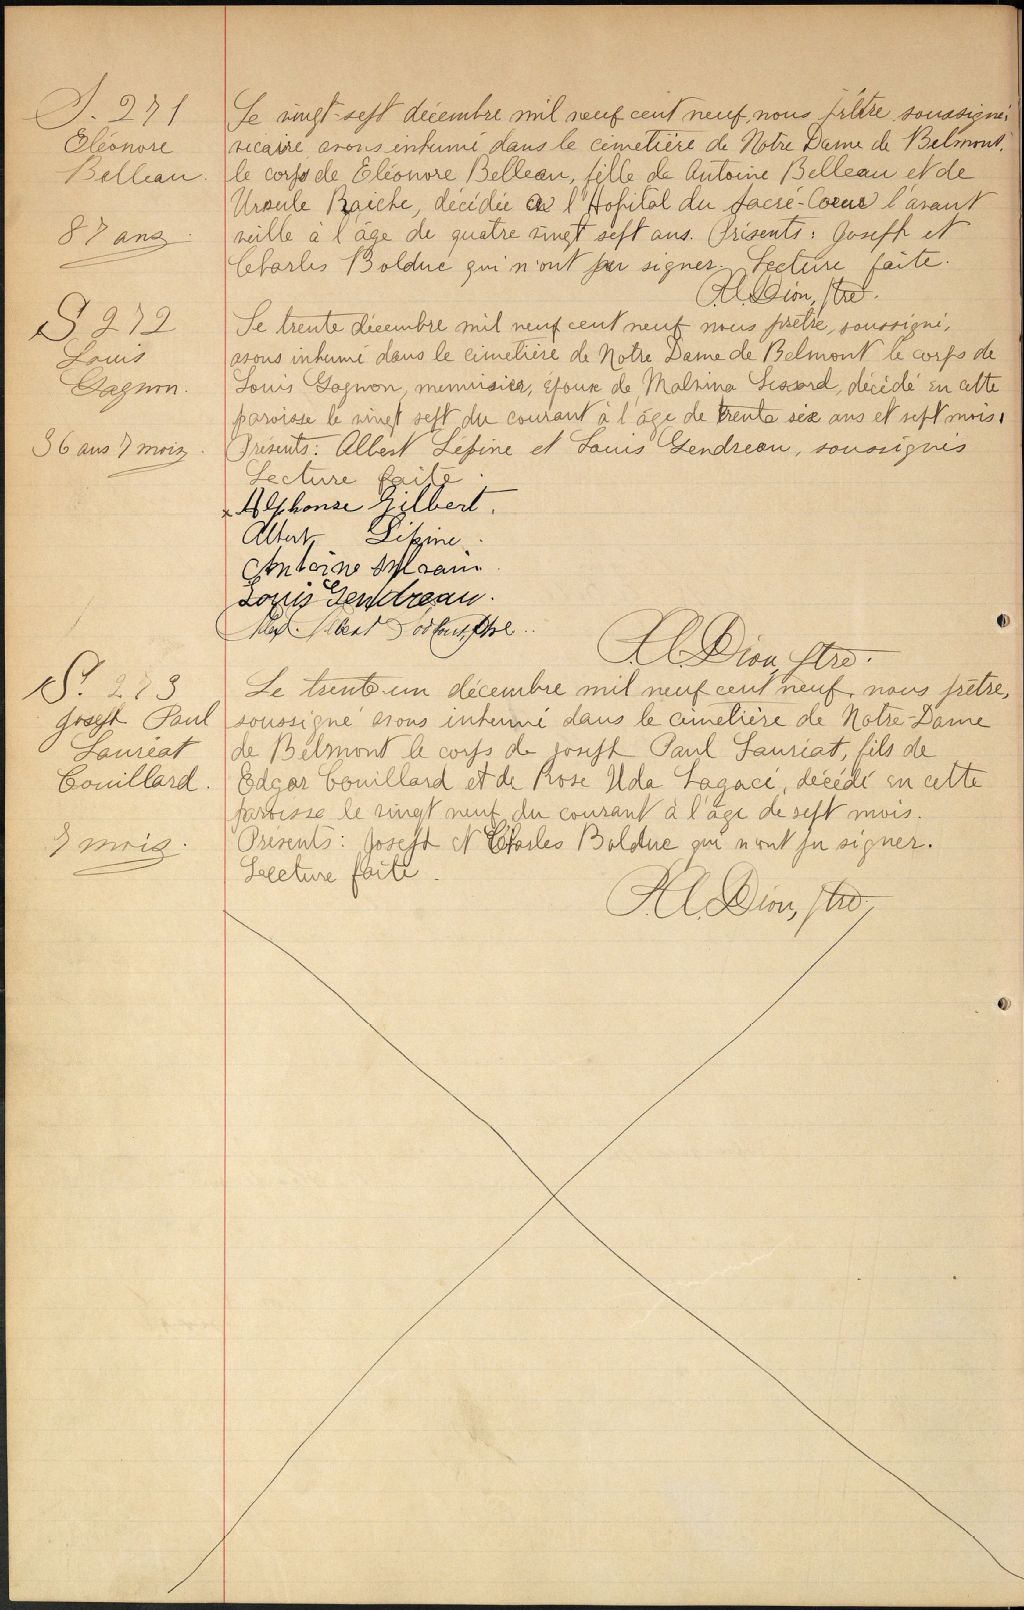 S. 271
Eléonore
Belleau.
87 ans.
Le vingt-sept décembre mil neuf cent neuf, nous prêtre soussigné,
vicaire avons inhumé dans le cimetière de Notre Dame de Belmont,
le corps de Eléonore Belleau, fille de Antoine Belleau et de
Ursule Raiche, décédée à l'Hopital du Sacré-Coeur l'avant
veille à l'âge de quatre vingt sept ans. Présents: Joseph et
Charles Bolduc qui n'ont pu signer. Lecture faite.
Dion, ptre.
S 272
Louis
Gagnon.
36 ans 7 mois.
Le trente décembre mil neuf cent neuf nous prêtre, soussigné,
avons inhumé dans le cimetière de Notre Dame de Belmont le corps de
Louis Gagnon, menuisier, époux de Malvina Lessard, décédé en cette
paroisse le vingt sept du courant à l'âge de trente six ans et sept mois.
Présents: Albert Lépine et Louis Gendreau, soussignés
Lecture faite.
x Alphonse Gilbert.
Albert Lépine.
Antoine
Louis Gendreau.
Albert
Dion, ptre.
S. 273
Joseph Paul
Lauréat
Couillard.
7 mois.
Le trente-un décembre mil neuf cent neuf, nous prêtre,
soussigné avons inhumé dans le cimetière de Notre-Dame
de Belmont le corps de Joseph Paul Lauriat, fils de
Edgar Couillard et de Rose Uda Lagacé, décédé en cette
paroisse le vingt neuf du courant à l'âge de sept mois.
Présents: Joseph et Charles Bolduc qui n'ont pu signer.
Lecture faite.
Dion, ptre.